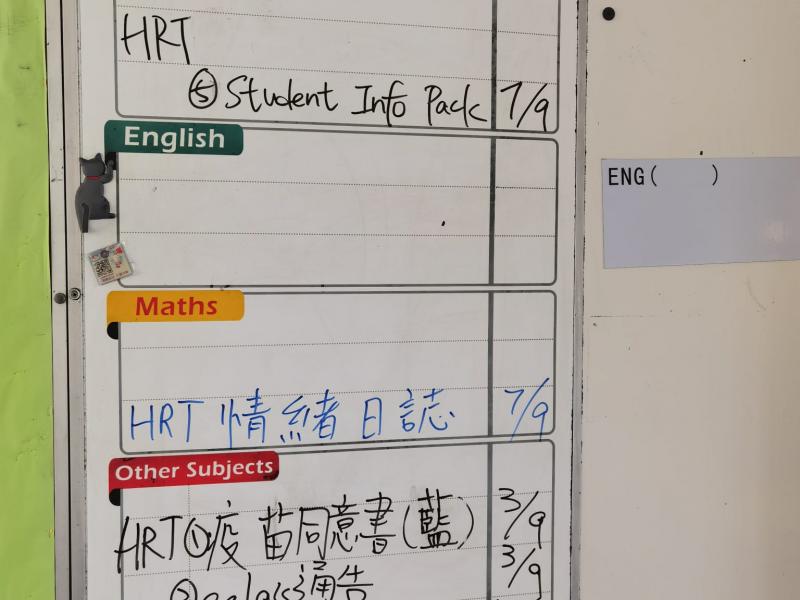 HRT
⑤ Student Info Pack 7/9
English
ENG( )
Maths
HRT 情緒日誌 7/9
Other Subjects
HRT①疫苗同意書(藍) 3/9
通告 3/9